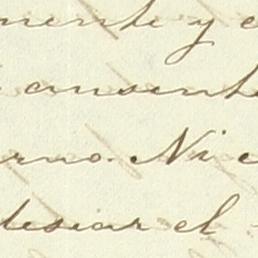 mente y e
consenti
erno. Ni e
desear el